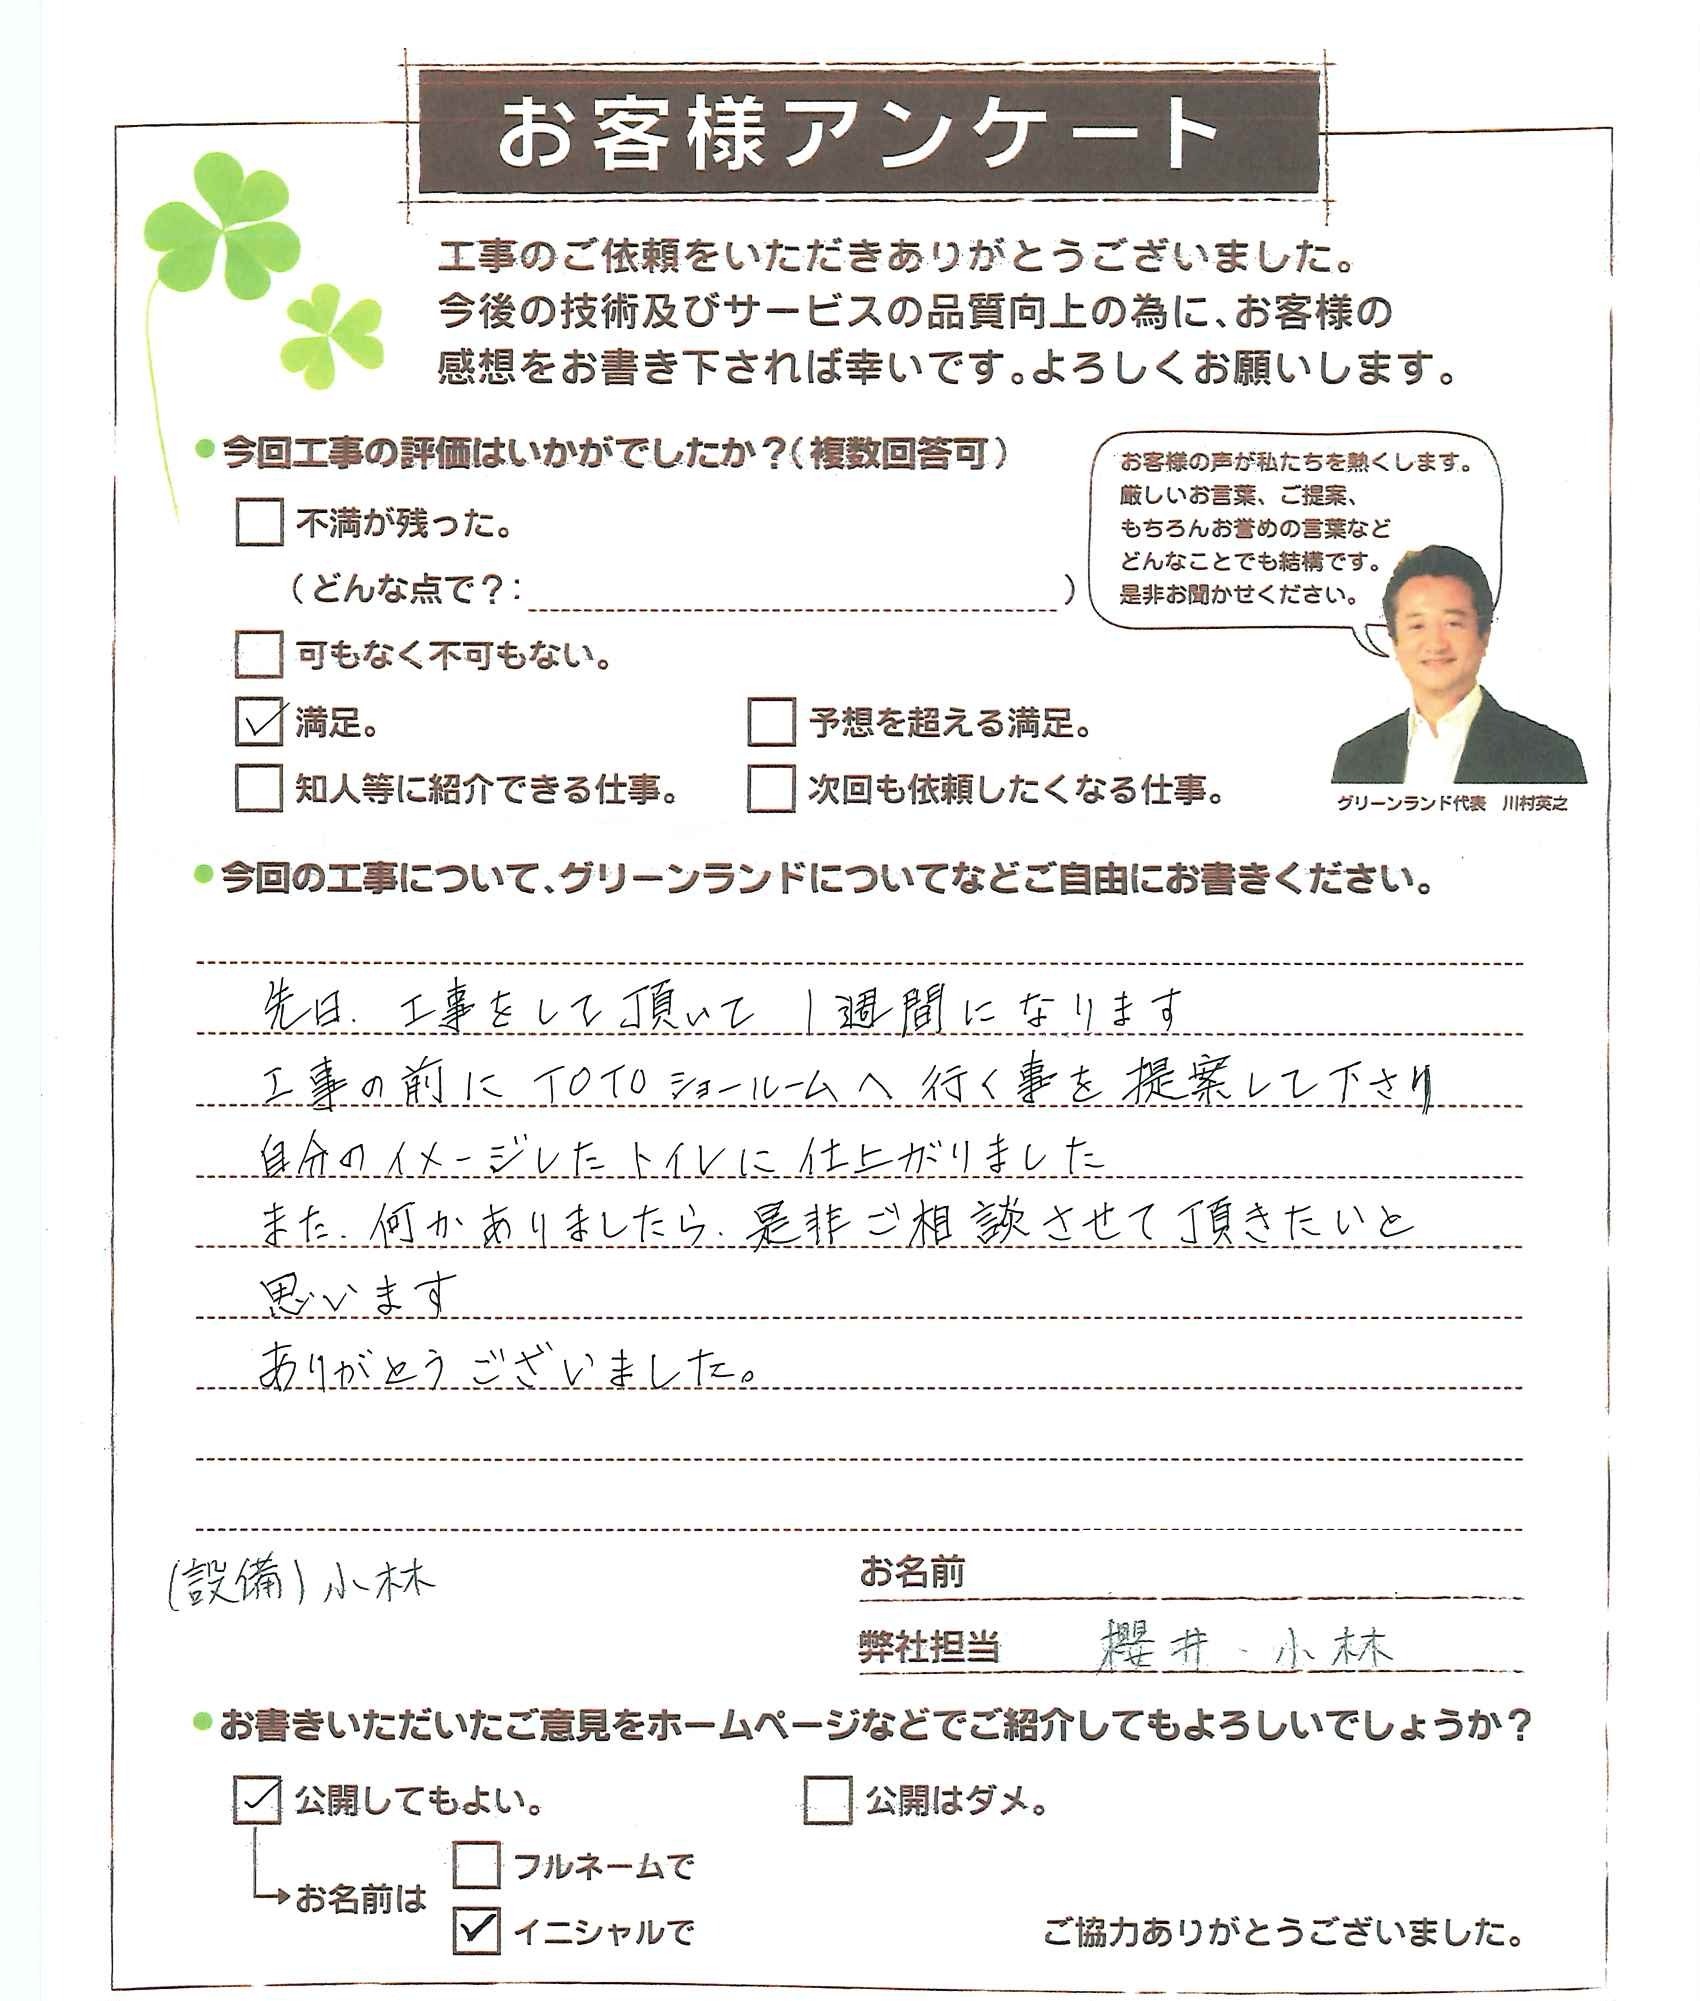 お客様アンケート
工事のご依頼をいただきありがとうございました。
今後の技術及びサービスの品質向上の為に、お客様の
感想をお書き下されば幸いです。よろしくお願いします。
●今回工事の評価はいかがでしたか？（複数回答可）
不満が残った。
（どんな点で？：）
可もなく不可もない。
満足。
予想を超える満足。
知人等に紹介できる仕事。
次回も依頼したくなる仕事。
お客様の声が私たちを熱くします。
厳しいお言葉、ご提案、
もちろんお誉めの言葉など
どんなことでも結構です。
是非お聞かせください。
グリーンランド代表　川村英之
●今回の工事について、グリーンランドについてなどご自由にお書きください。
先日、工事をして頂いて 1週間になります
工事の前に TOTOショールームへ 行く事を 提案して下さり
自分のイメージしたトイレに 仕上がりました
また、何かありましたら、是非ご相談させて頂きたいと
思います
ありがとうございました。
(設備) 小林
お名前
弊社担当　櫻井・小林
●お書きいただいたご意見をホームページなどでご紹介してもよろしいでしょうか？
公開してもよい。
公開はダメ。
お名前は
フルネームで
イニシャルで
ご協力ありがとうございました。